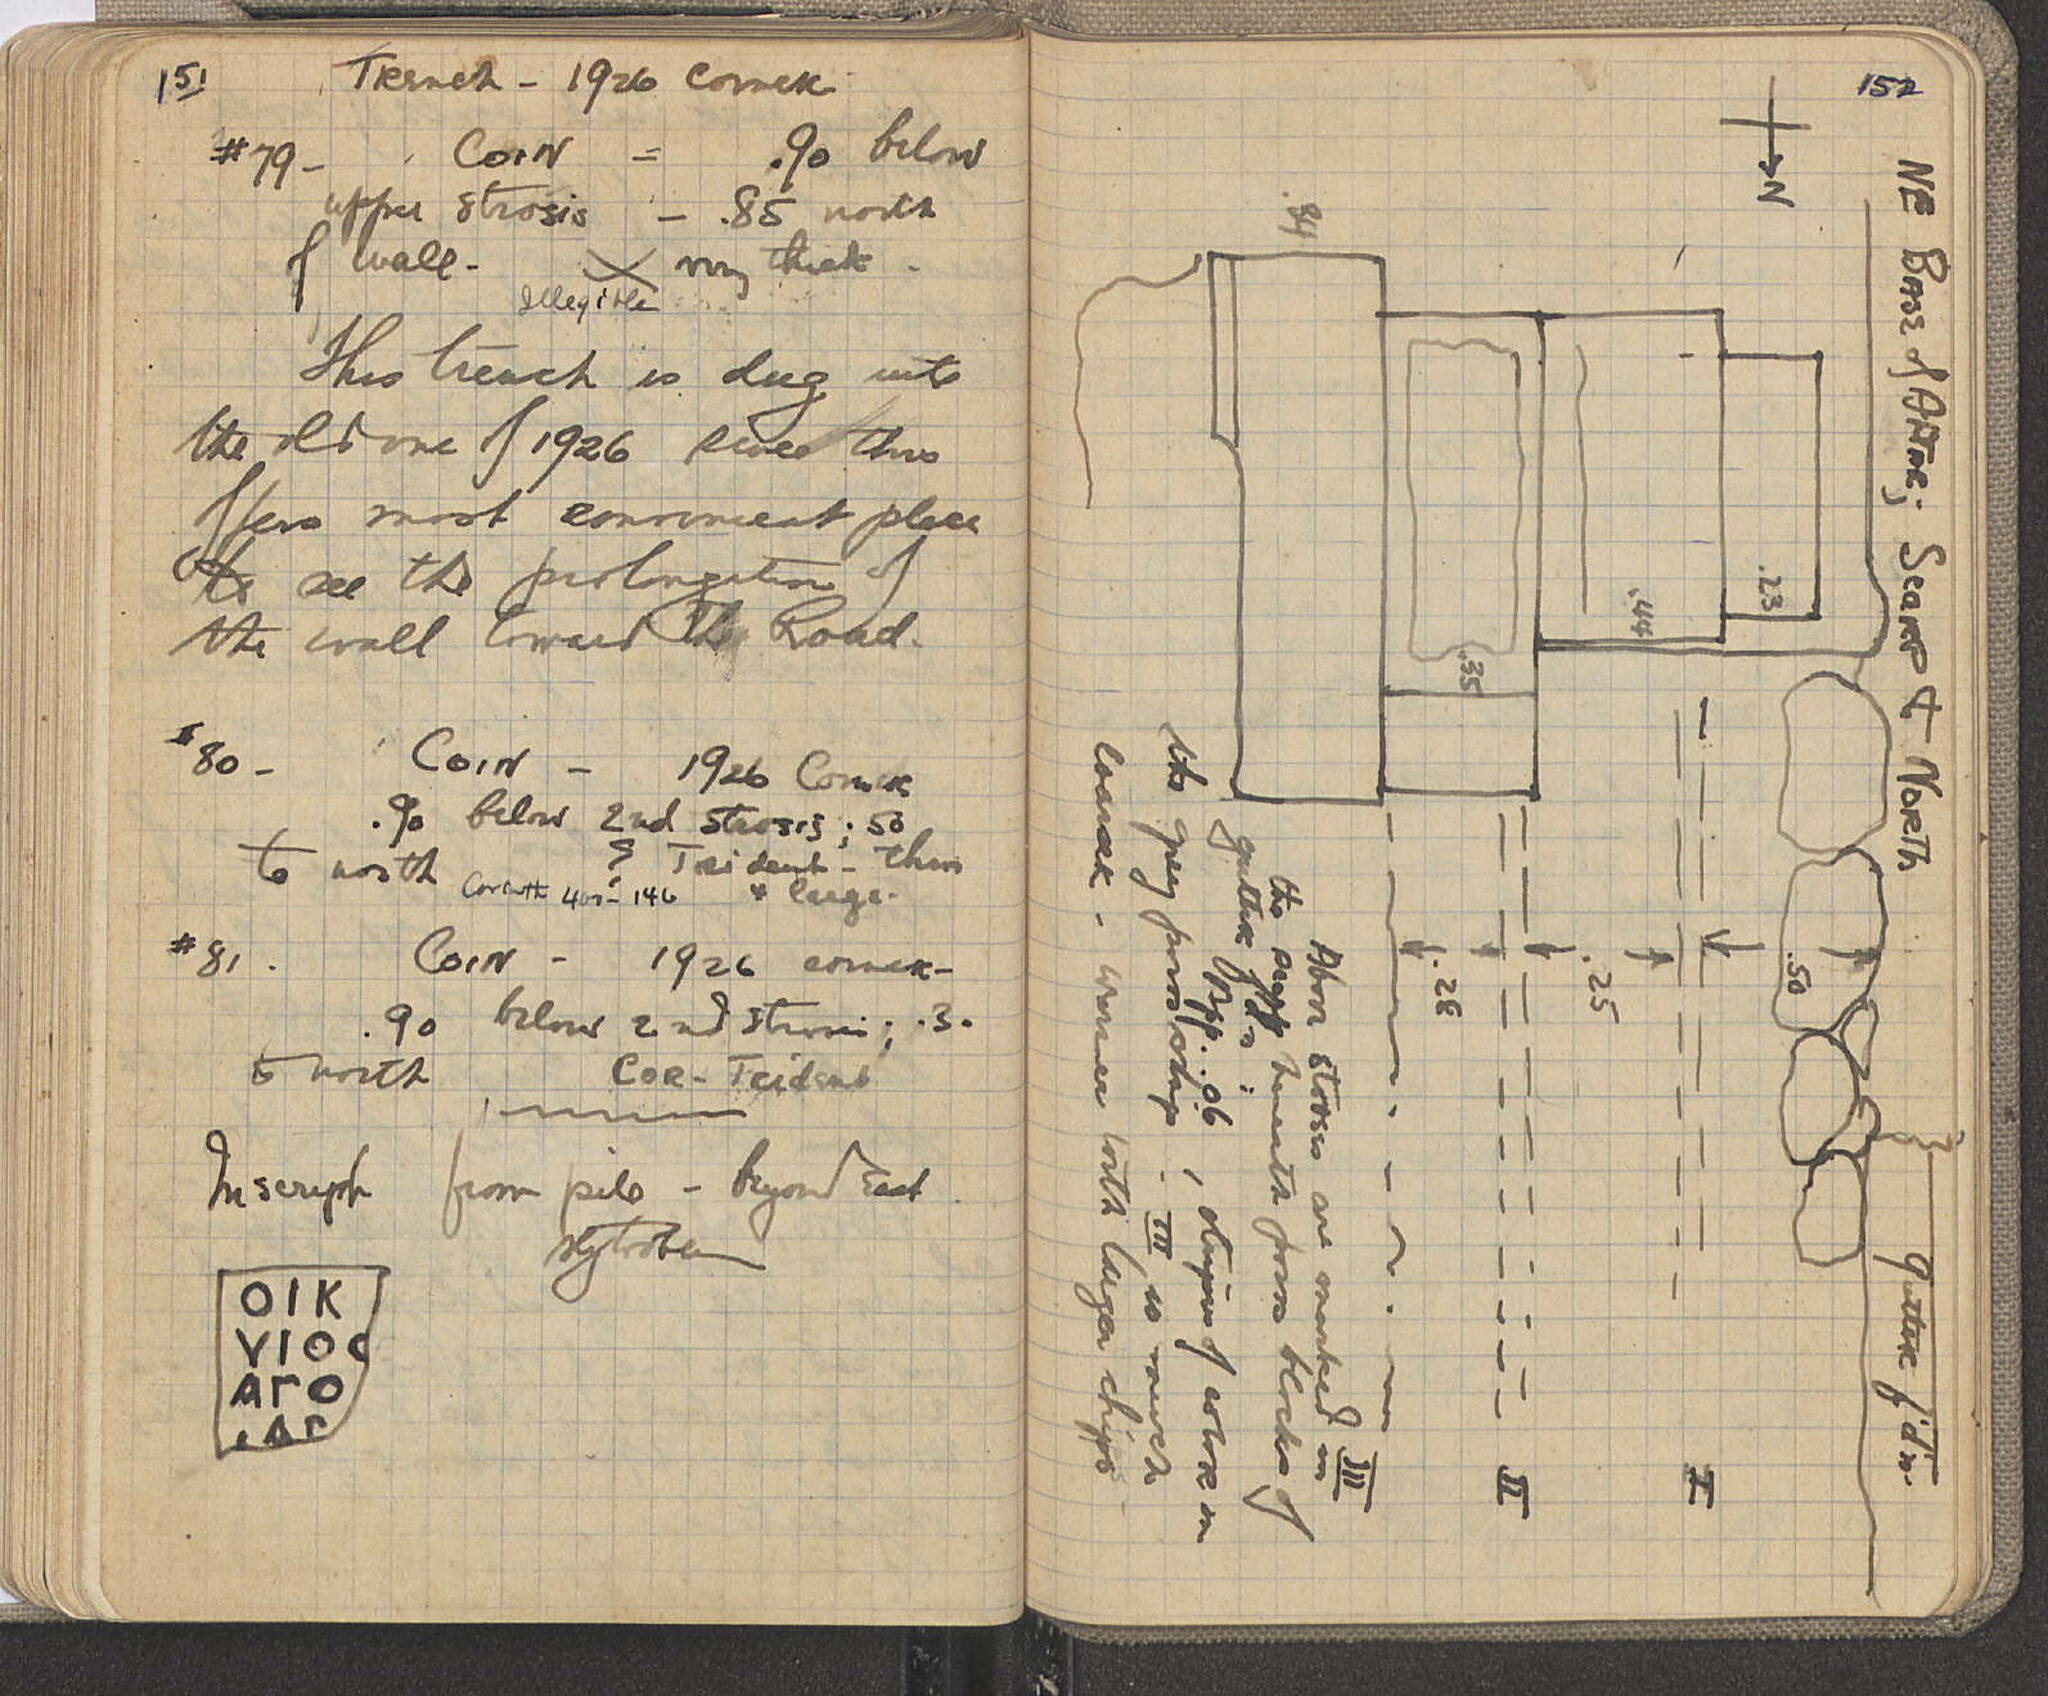 151
Trench - 1926 corner
#79 - COIN = .90 below
upper strosis - .85 north
of wall - very thick -
Illegible
This trench is dug into
the old one of 1926 since this
offers most convenient place
to see the prolongation of
the wall toward the Road.
#80 - COIN - 1926 Corner
.90 below 2nd strosis; .50
to north ? Trident - thin
Corinth 400-146 & large -
#81. COIN - 1926 corner -
.90 below 2nd strosis; .30
to north Cor - Trident
Inscript from pile - beyond East
ΟΙΚ
ΥΙΟ
ΑΓΟ
.ΑΓ
152
NE Base of Altar; Scarp to North
N
.84
.35
.44
.23
.28
.25
.50
gutter f'd'n.
I
II
III
Above strosis are marked in
the scarp beneath poros blocks of
gutter f'd'n; Opp. .06, stripes of color in
the grey poros chip. III is much
coarser - uneven with larger chips